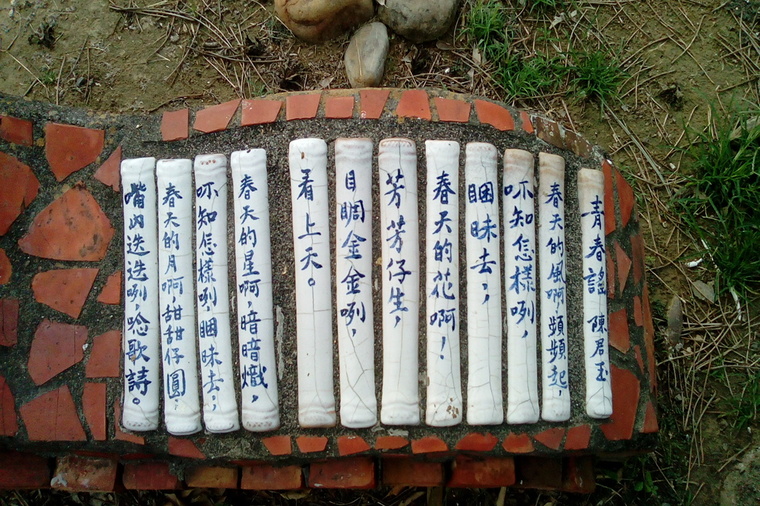 青春謠 陳君玉
春天的風啊,頻頻起,
呩知怎樣咧,
睏昧去,
春天的花啊!
芳芳仔生,
目睭金金咧,
看上天。
春天的星啊,暗暗熾,
呩知怎樣咧,睏昧去,
春天的月啊,甜甜仔圓,
嘴凶迭迭咧,唸歌詩。